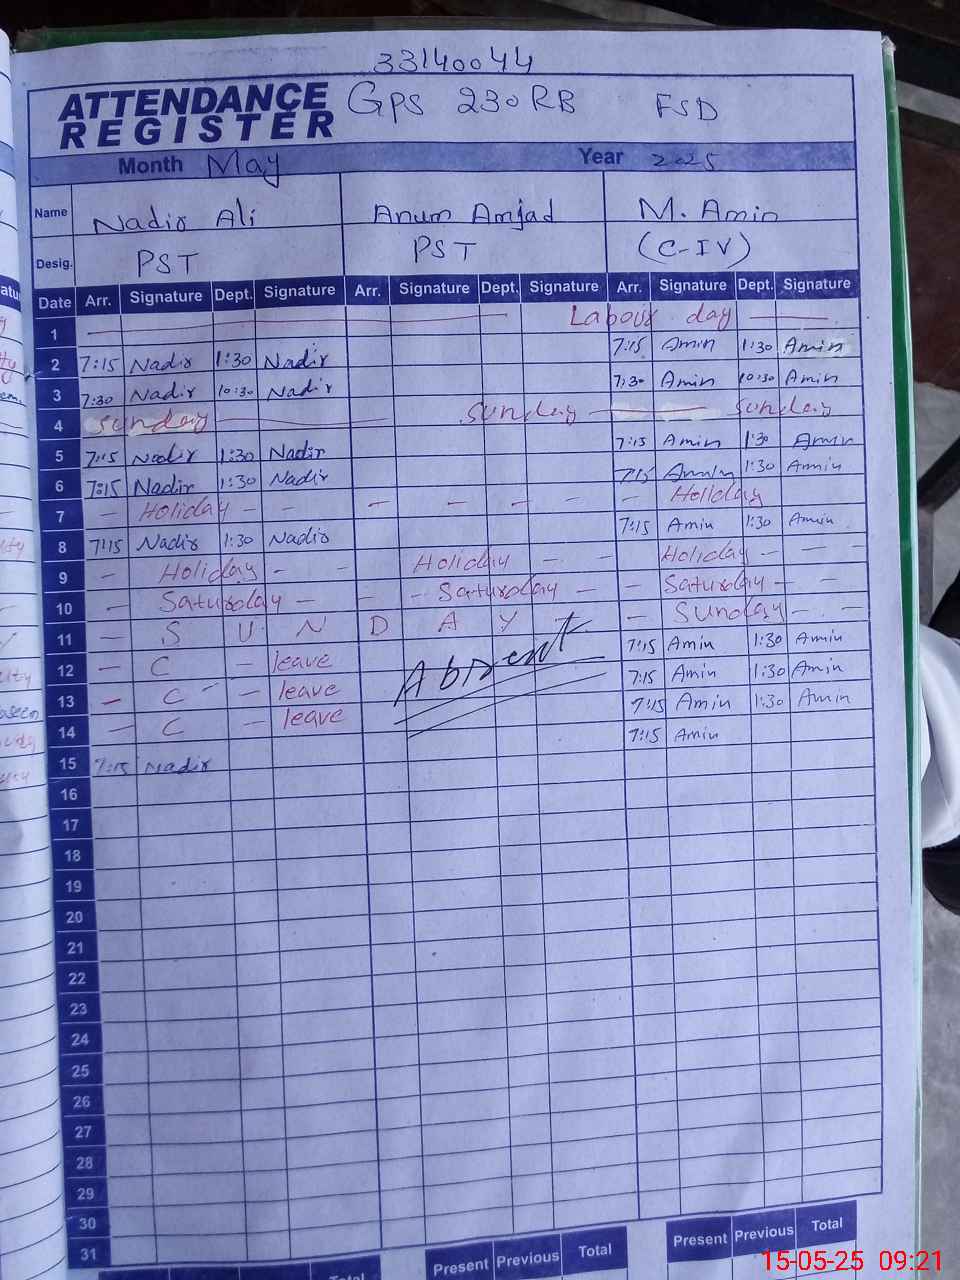 33140044
ATTENDANCE REGISTER GPS 230 RB FSD
Month May Year 2025
Name Nadir Ali Anum Amjad M. Amin
Desig. PST PST (C-IV)
Date Arr. Signature Dept. Signature Arr. Signature Dept. Signature Arr. Signature Dept. Signature
1 Labour day
2 7:15 Nadir 1:30 Nadir 7:15 Amin 1:30 Amin
3 7:30 Nadir 10:30 Nadir 7:30 Amin 10:30 Amin
4 Sunday Sunday Sunday
5 7:15 Nadir 1:30 Nadir 7:15 Amin 1:30 Amin
6 7:15 Nadir 1:30 Nadir 7:15 Amin 1:30 Amin
7 - Holiday - - - - - - - Holiday
8 7:15 Nadir 1:30 Nadir 7:15 Amin 1:30 Amin
9 - Holiday - - Holiday - - Holiday - - -
10 - Saturday - - - Saturday - - Saturday - -
11 - S U N D A Y - - Sunday - -
12 - C - leave Absent 7:15 Amin 1:30 Amin
13 - C - - leave 7:15 Amin 1:30 Amin
14 - C - leave 7:15 Amin 1:30 Amin
15 7:15 Nadir 7:15 Amin
16
17
18
19
20
21
22
23
24
25
26
27
28
29
30
31
Present Previous Total Present Previous Total
15-05-25 09:21